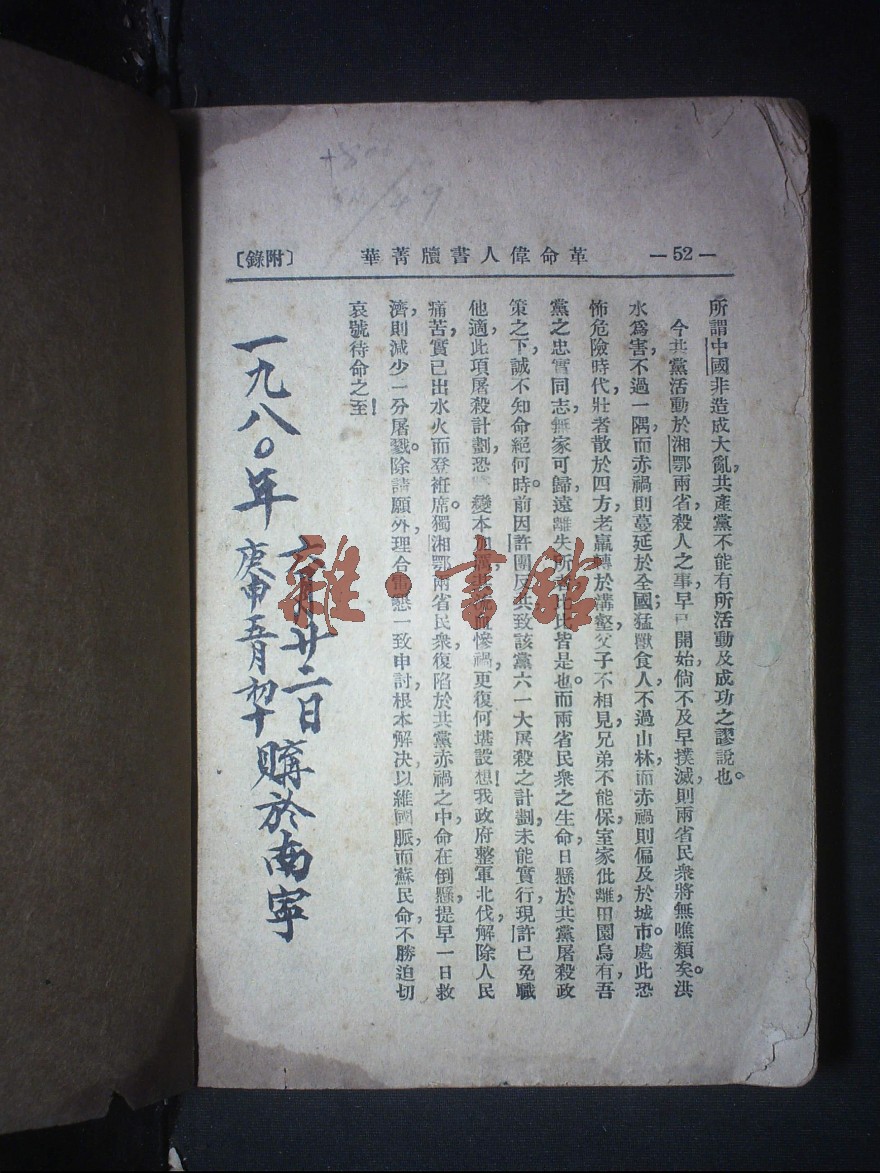 —52—
革命偉人書牘菁華
〔附錄〕
所謂中國非造成大亂，共產黨不能有所活動及成功之謬說也。
今共黨活動於湘鄂兩省，殺人之事，早已開始，倘不及早撲滅，則兩省民衆將無噍類矣。洪
水爲害，不過一隅，而赤禍則蔓延於全國；猛獸食人，不過山林，而赤禍則偏及於城市。處此恐
怖危險時代，壯者散於四方，老羸轉於溝壑，父子不相見，兄弟不能保，室家仳離，田園烏有，吾
黨之忠實同志，無家可歸，遠離失所者，比比皆是也。而兩省民衆之生命，日懸於共黨屠殺政
策之下，誠不知命絕何時。前因許團反共，致該黨六一大屠殺之計劃，未能實行，現許已免職
他適，此項屠殺計劃，恐 變本加厲，流血慘禍，更復何堪設想！我政府整軍北伐，解除人民
痛苦，實已出水火而登衽席。獨湘鄂兩省民衆，復陷於共黨赤禍之中，命在倒懸，提早一日救
濟，則減少一分屠戮。除請願外，理合電懇一致申討，根本解决，以維國脈，而蘇民命，不勝迫切
哀號待命之至！
一九八〇年
六月廿二日
庚申五月初十
購於南寧
49
雜·書館